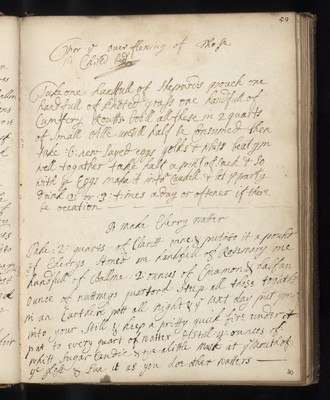 59
For ye over flowing of those
in Child bed
Take one handfull of sheppards pouch one
handfull of knoted grass one handfull of
Cumfery Rootts boill all these in 2 quarts
of small Aille untill half be consumed then
take :6: new layed eggs yolds & whits beat ym
well together take half a pint of sack & so
with ye Eggs make it into Caudell & let ye party
drink 2: or 3: times a day or oftener if there
be occation
To make Chery water
Take :2: quarts of Clarit wine & put to it a pound
of Cherys stoned one handfull of Rosemary one
handfull of Balme: 2 ounces of Cinamon & half an
ounce of nutmegs steep all these together
in an Earthen pott all night & ye next day put you
into your still & keep a pritty quick fire under it
put to every quart of watter distild ounces of
whitt suger Candie & a litle Musk at ye mouth of
ye glass & use it as you doe other watters